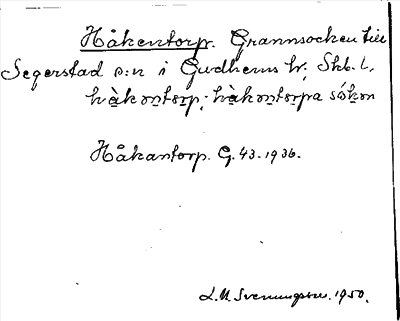 Håkentorp. Grannsocken till
Segerstad s:n i Gudhems hd; Skb. l.
hàkontorp; hàkontorpa sókon
Håkantorp. G. 43. 1936.
L. M. Svenungsson. 1950.